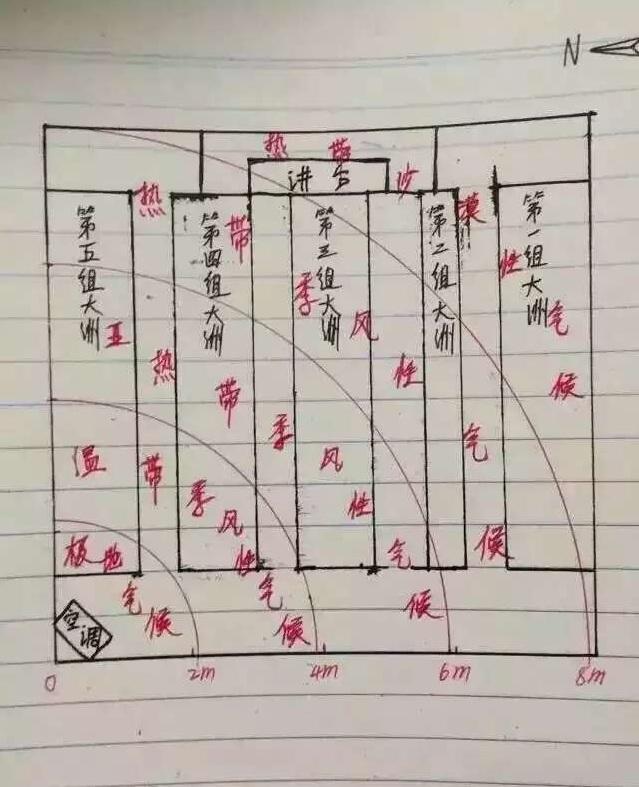 N
热带沙漠性气候
讲台
热带季风性气候
第五组大洲
第四组大洲
第三组大洲
第二组大洲
第一组大洲
亚热带季风性气候
温带季风性气候
极地气候
空调
0 2m 4m 6m 8m